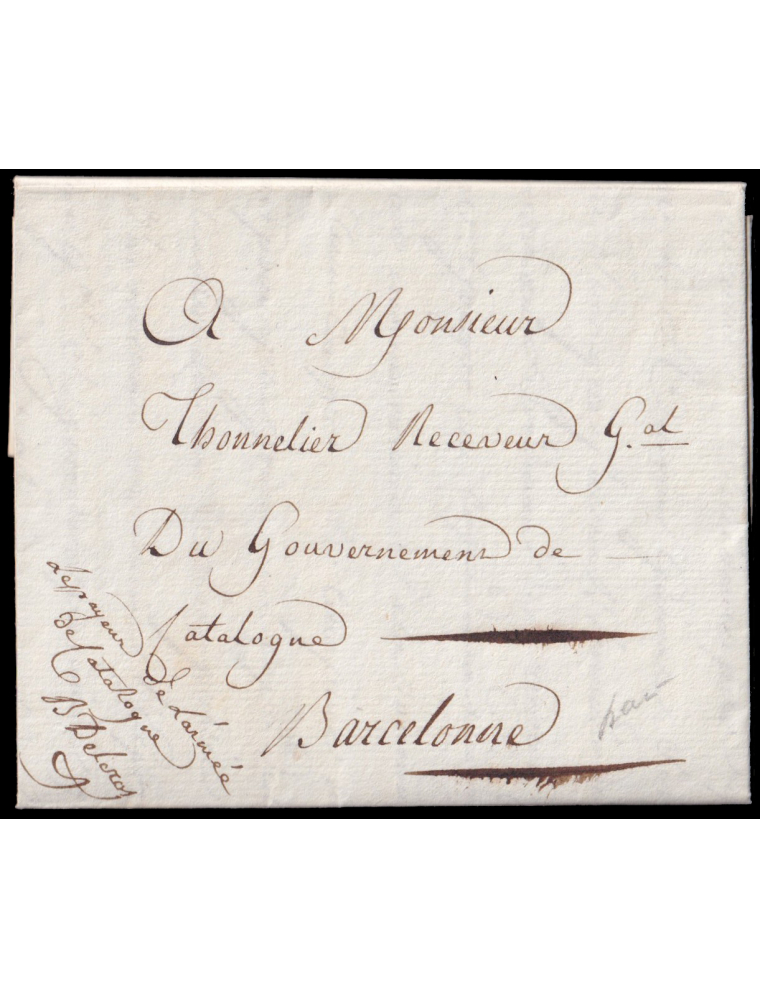 A Monsieur
Thonnelier Receveur G.al
Du Gouvernement de
Catalogne
Barcelonne
le payeur de l'armée
de Catalogne
B Delcros